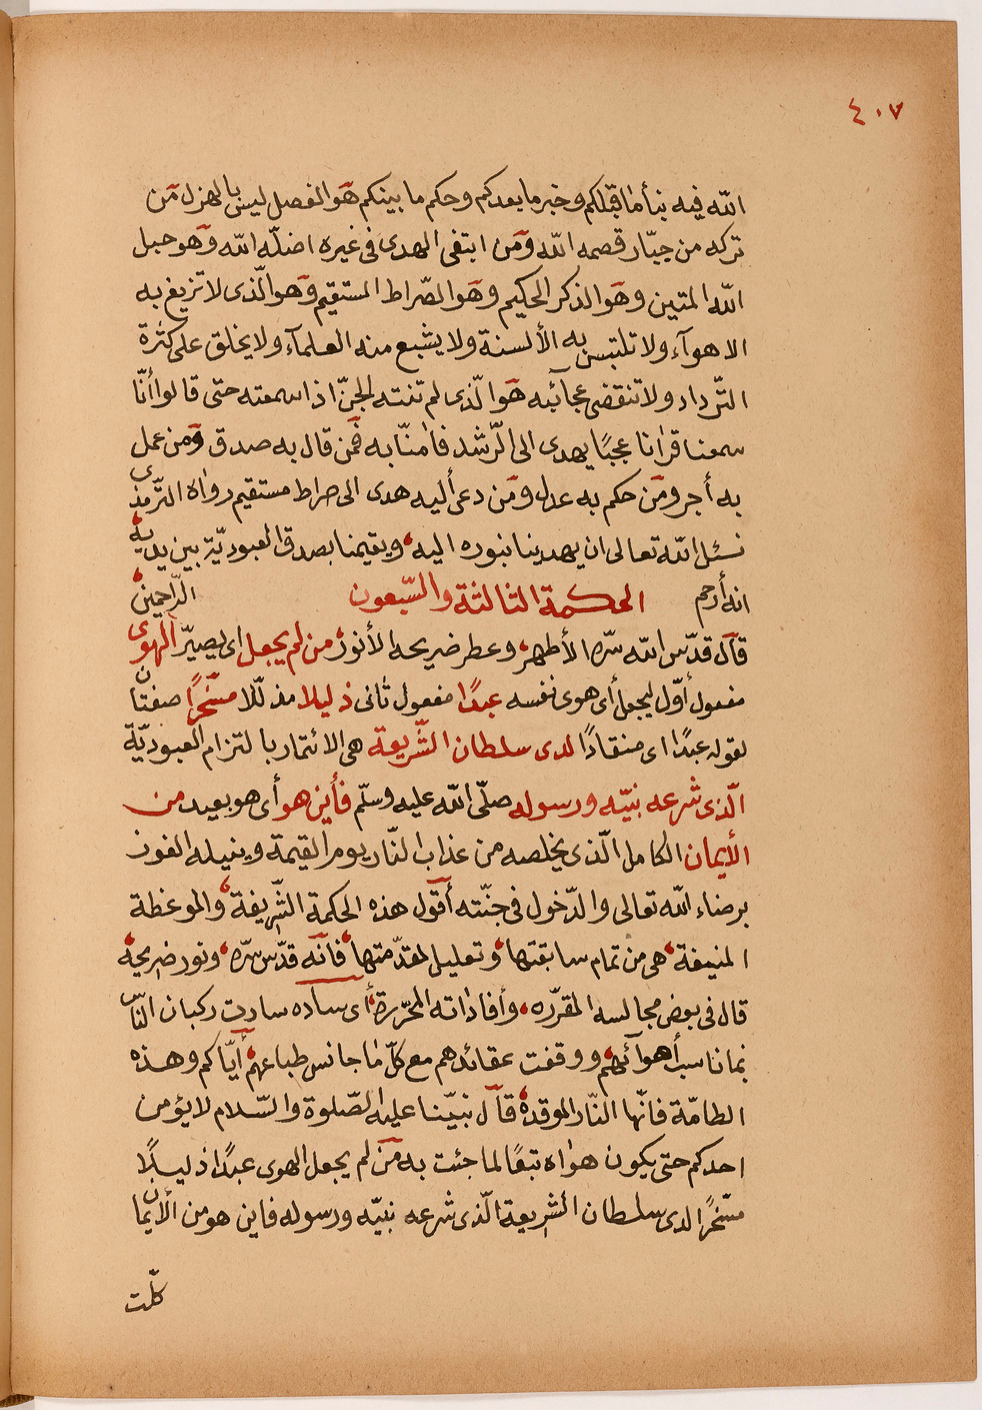 ٤٠٧
الله فيه نبأ ما قبلكم وخبر ما بعدكم وحكم ما بينكم هو الفصل ليس بالهزل من
تركه من جبّار قصمه الله ومن ابتغى الهدى فى غيره اضلّه الله وهو حبل
الله المتين وهو الذكر الحكيم وهو الصّراط المستقيم وهو الّذى لا تزيغ به
الاهوآء ولا تلتبس به الألسنة ولا يشبع منه العلمآء ولا يخلق على كثرة
التّرداد ولا تنقضى عجائبه هو الّذى لم تنته الجنّ اذا سمعته حتى قالوا أنّا
سمعنا قرانا عجبًا يهدى الى الرّشد فامنّا به فمن قال به صدق ومن عمل
به أجر ومن حكم به عدل ومن دعى أليه هدى الى صراط مستقيم رواه التّرمذى
نسئل الله تعالى ان يهدينا بنوره اليه، ويقيمنا بصدق العبوديّة بين يديه
انه أرحم الحكمة الثالثة والسّبعون الرّاحمين،
قال قدّس الله سرّه الأطهر، وعطر ضريحه الأنور، من لم يجعل اى يصيرّ الهوى
مفعول أوّل ليجعل أى هوى نفسه عبدًا مفعول ثانى ذليلا مذلّلا مسّخرًا صفتان
لقوله عبدًا اى منقادًا لدى سلطان الشّريعة هى الائتمار بالتزام العبوديّة
الّذى شرعه نبيّه ورسوله صلّى الله عليه وسلّم فأين هو أى هو بعيد من
الأيمان الكامل الّذى يخلصه من عذاب النّار يوم القيمة وينيله الفوز
برضاء الله تعالى والدّخول فى جنّته أقول هذه الحكمة الشّريفة، والموعظة
المنيفة، هى من تمام سابقتها، وتعليل لمقدّمتها، فانه قدّس سرّه، ونور ضريحه،
قال فى بعض مجالسه المقرّره، وأفاداته المحرّرة، أى ساده سارت ركبان النّاس
بما ناسب أهوآئهم، ووقفت عقائدهم مع كلّ ما جانس طباعهم، أيّاكم وهذه
الطامّة فانّها النّار الموقدة، قال نبيّنا عليه الصّلوة والسّلام لا يؤمن
احدكم حتى يكون هواه تبعًا لما جئت به من لم يجعل الهوى عبدًا ذليلًا
مسّخرًا لدى سلطان الشريعة الّذى شرعه نبيّه ورسوله فاين هو من الأيمان
كلّت